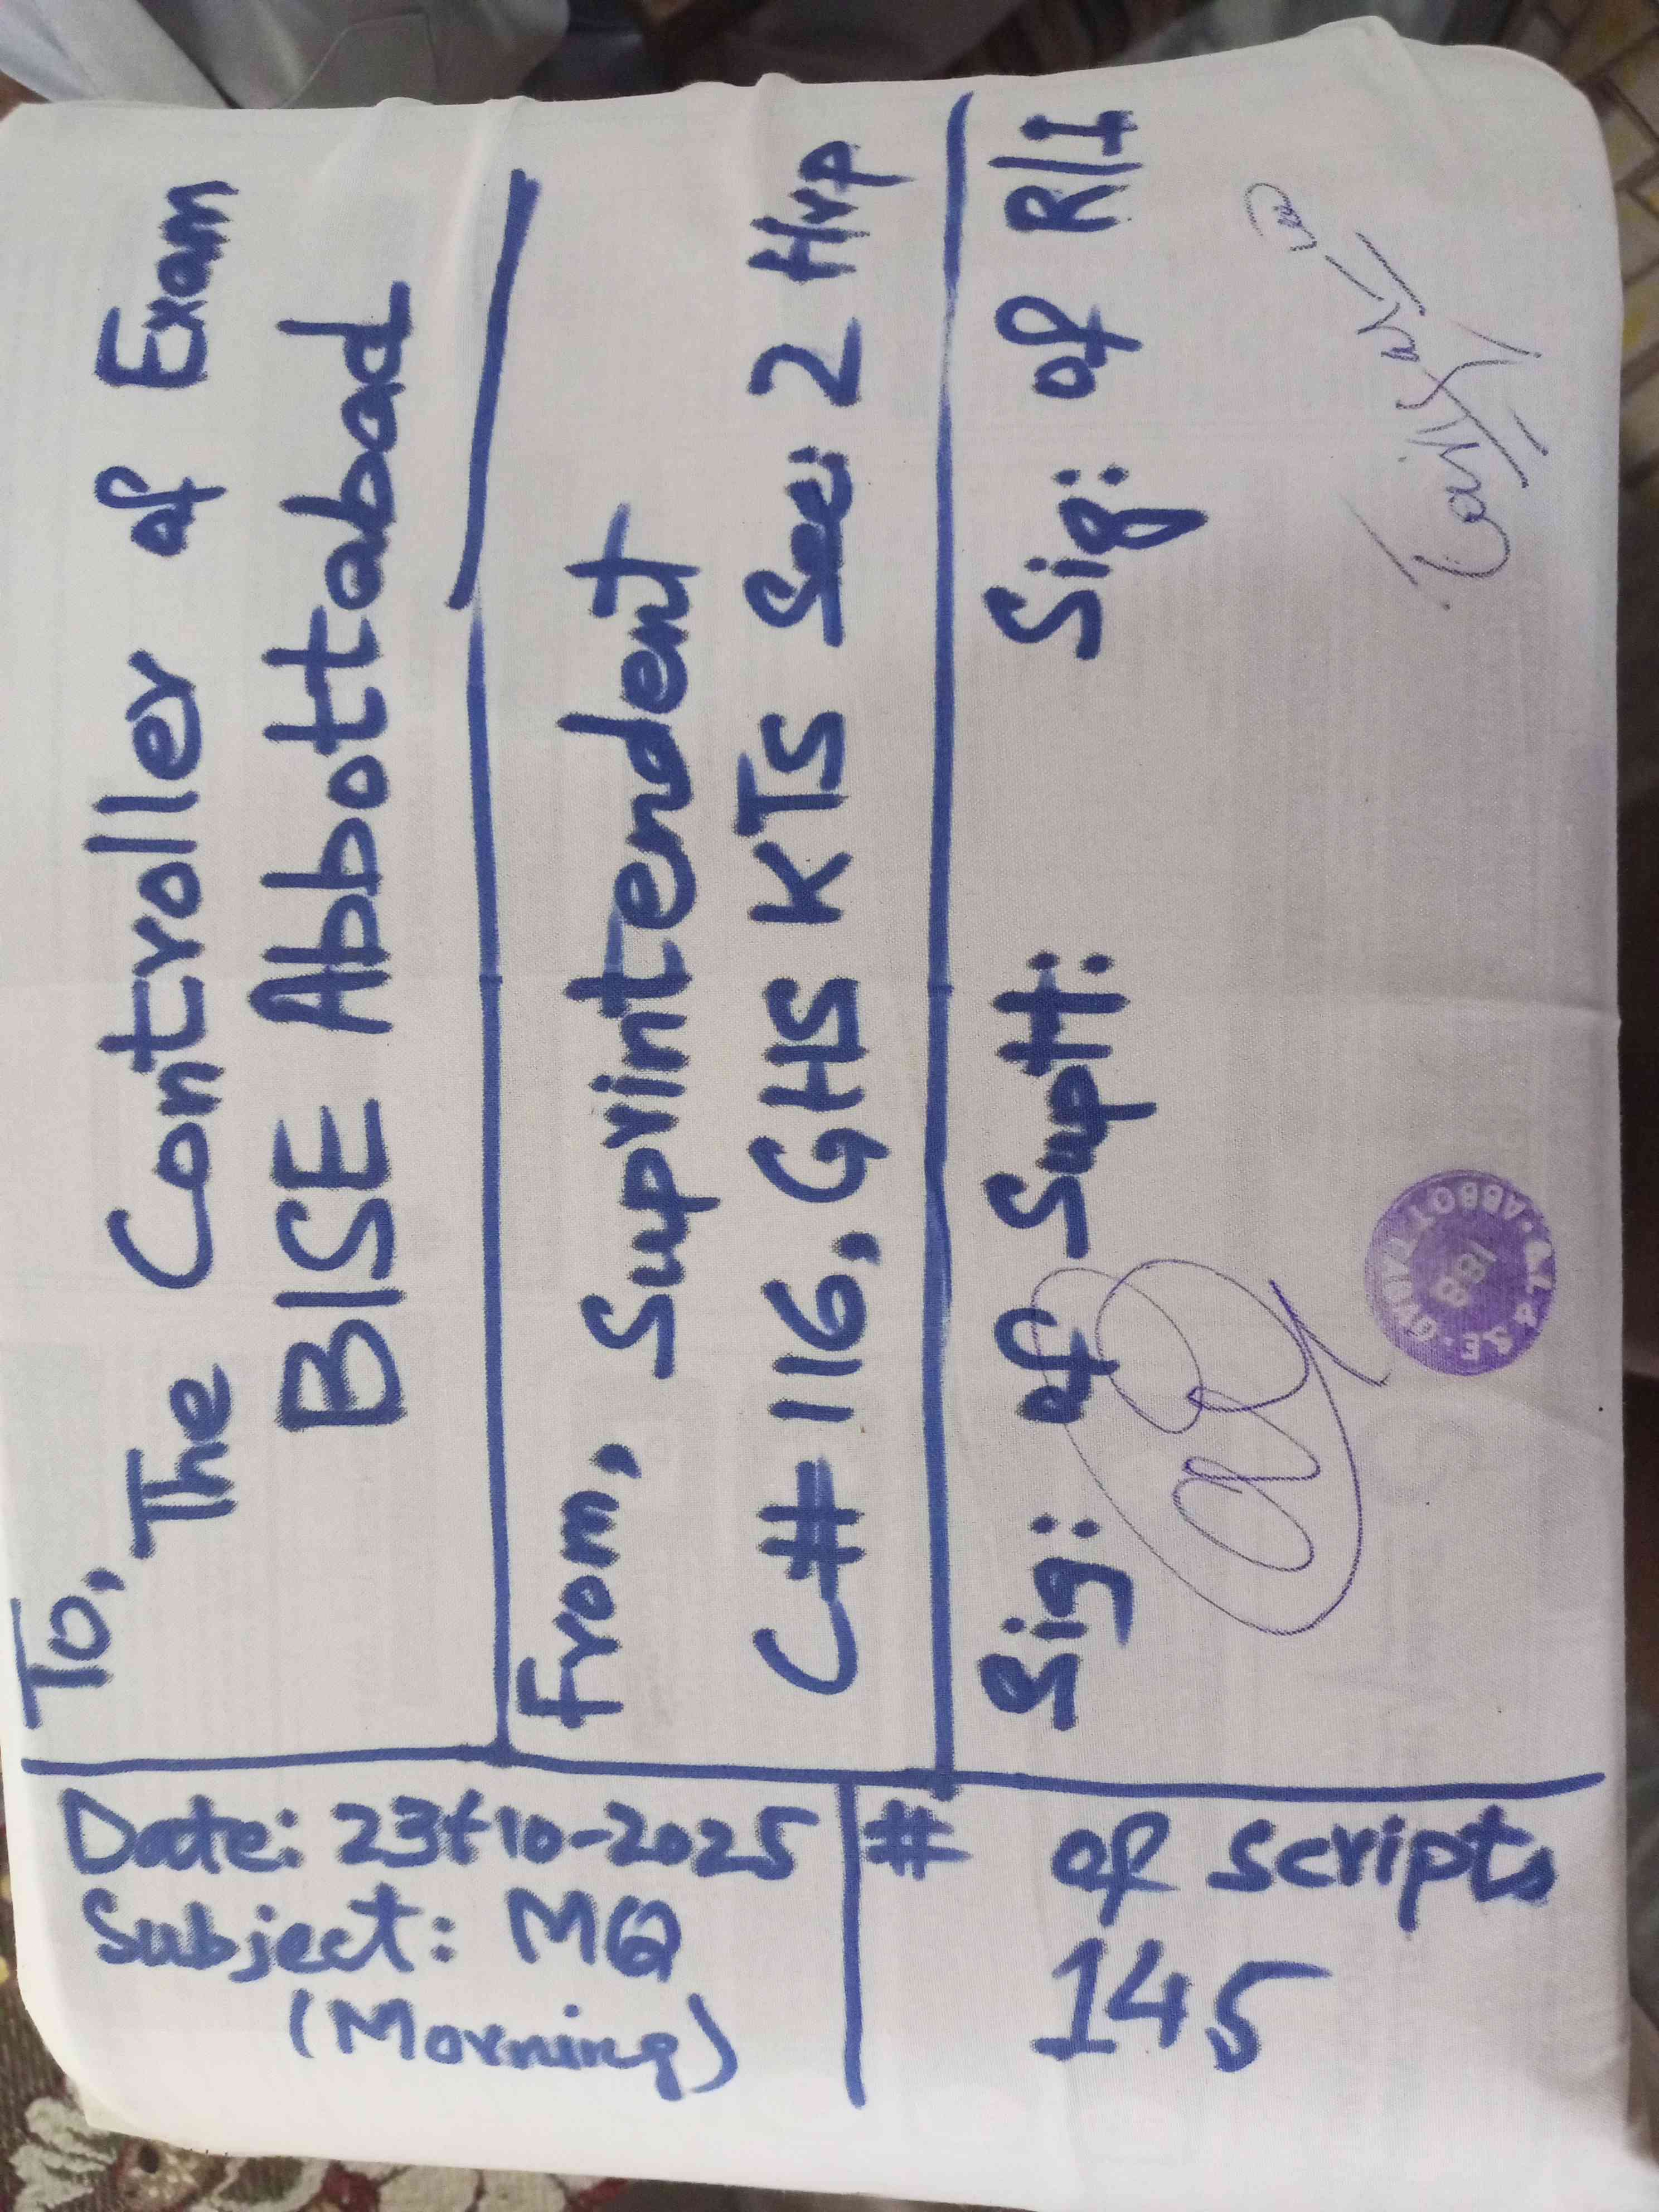 Date: 23-10-2025
Subject: MQ
(Morning)
# of scripts
145
To,
The Controller of Exam
BISE Abbottabad
From, Suprintendent
C# 116, GHS KTS Sec: 2 Hrp
Sig: of Supt:
Sig: of R/I
188
ABBOTTABAD